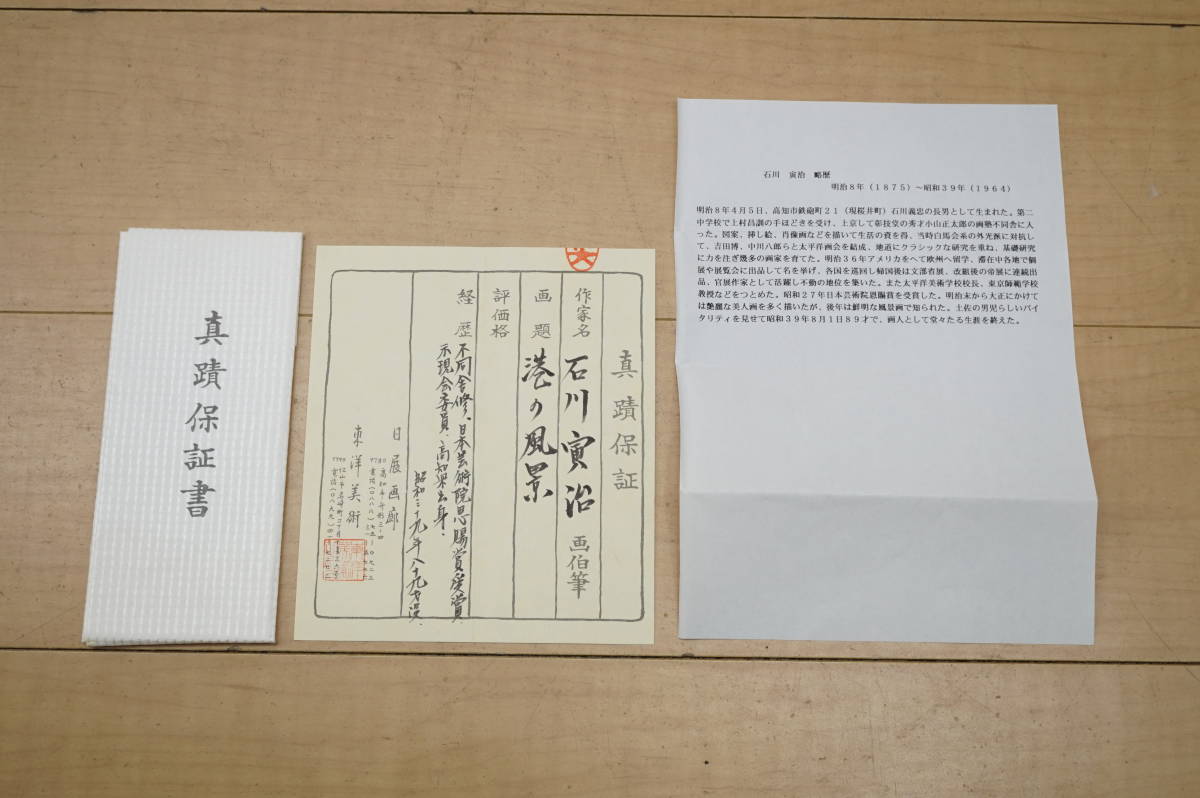 真蹟保証書
真蹟保証
作家名 石川寅治 画伯筆
画題 港の風景
評価格
経歴 不同舎修、日本芸術院恩賜賞受賞、
示現会委員、高知県出身、
昭和三十九年八十九才没、
日展画廊
東洋美術
石川 寅治 略歴
明治8年(1875)~昭和39年(1964)
明治8年4月5日、高知市鉄砲町21(現桜井町)石川義忠の長男として生まれた。第二
中学校で上村昌訓の手ほどきを受け、上京して彰技堂の秀才小山正太郎の画塾不同舎に入
った。図案、挿し絵、肖像画などを描いて生活の資を得、当時白馬会系の外光派に対抗し
て、吉田博、中川八郎らと太平洋画会を結成、地道にクラシックな研究を重ね、基礎研究
に力を注ぎ幾多の画家を育てた。明治36年アメリカをへて欧州へ留学、滞在中各地で個
展や展覧会に出品して名を挙げ、各国を巡回し帰国後は文部省展、改組後の帝展に連続出
品、官展作家として活躍し不動の地位を築いた。また太平洋美術学校校長、東京師範学校
教授などをつとめた。昭和27年日本芸術院恩賜賞を受賞した。明治末から大正にかけて
は艶麗な美人画を多く描いたが、後年は鮮明な風景画で知られた。土佐の男児らしいバイ
タリティを見せて昭和39年8月1日89才で、画人として堂々たる生涯を終えた。